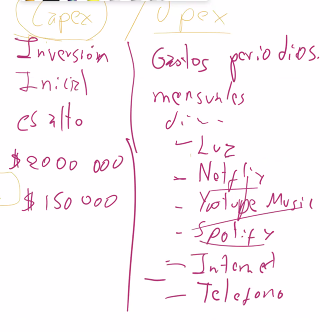 Capex / Opex
Inversión
Inicial
es alto
$2000 000
$150 000
Gastos periodios.
mensuales
di...
- Luz
- Netflix
- Yotupe Music
- Spotify
- Internet
- Telefono